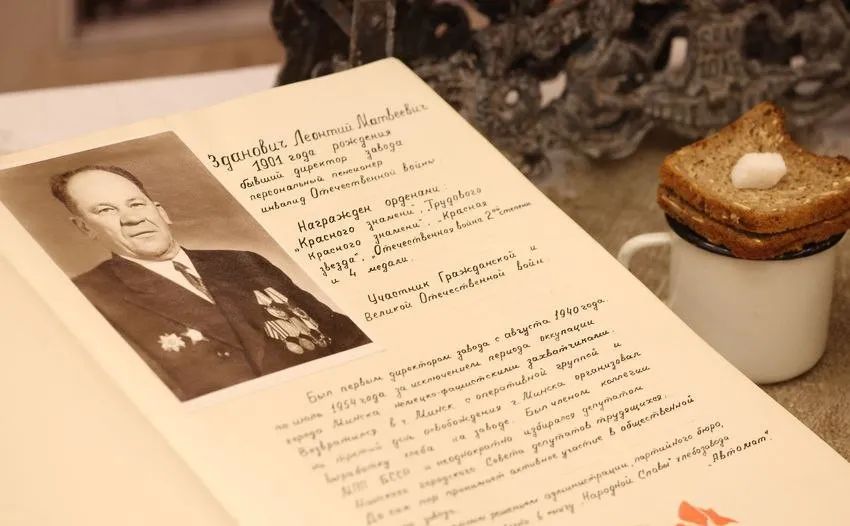 Зданович Леонтий Матвеевич
1901 года рождения
бывший директор завода
персональный пенсионер
инвалид Отечественной войны
Награжден орденами:
"Красного знамени", Трудового
Красного знамени", "Красная
звезда", "Отечественная война 2ой степени
и 4 медали.
Участник Гражданской и
Великой Отечественной войн.
Был первым директором завода с августа 1940 года
по июль 1954 года за исключением периода оккупации
города Минска немецко-фашистскими захватчиками.
Возвратился в г. Минск с оперативной группой и
на третий день освобождения г. Минска организовал
выработку хлеба на заводе. Был членом коллегии
МПП БССР и неоднократно избирался депутатом
Минского городского Совета депутатов трудящихся.
До сих пор принимает активное участие в общественной
завода.
решением администрации, партийного бюро,
в книгу "Народной Славы" хлебозавода
"Автомат".